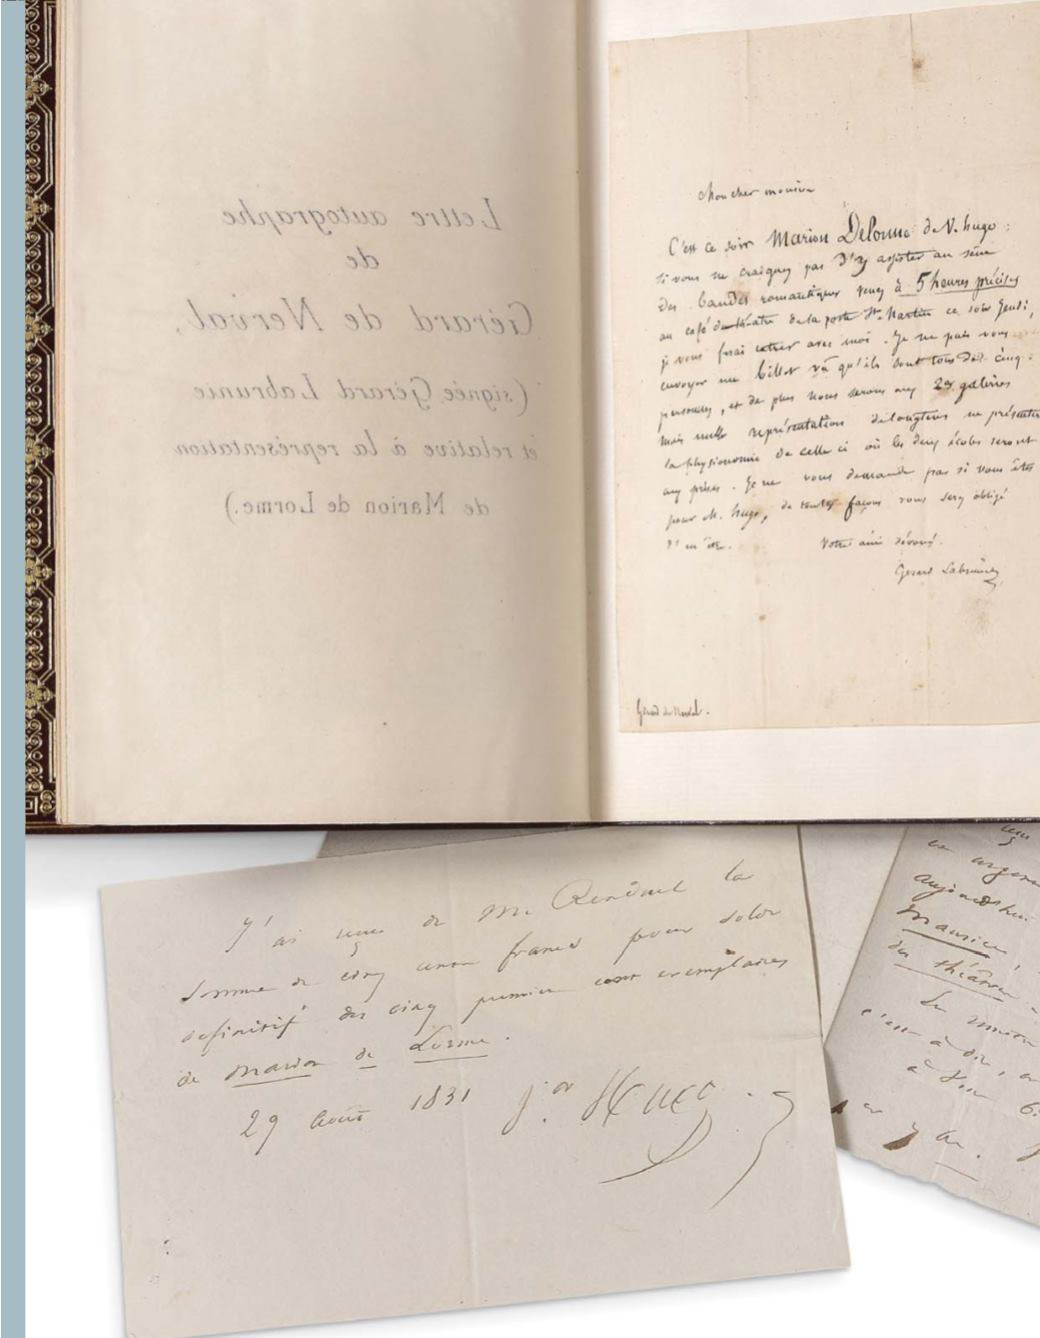 Lettre autographe
de
Gérard de Nerval,
(signée Gérard Labrunie
et relative à la représentation
de Marion de Lorme.)
Mon cher monsieur
C'est ce soir Marion Delorme de V. hugo :
si vous ne craignez pas d'y assister au sein
des bandes romantiques venez à 5 heures précises
au café du théatre de la porte St. Martin ce soir Jeudi,
je vous ferai entrer avec moi. Je ne puis vous
envoyer un billet vû qu'ils sont tous de cinq
personnes, et de plus nous serons aux 2es galeries
mais nulle représentation de longtems ne présentera
la physionomie de celle ci où les deux écoles seront
aux prises. Je ne vous demande pas si vous êtes
pour M. hugo, de toutes façons vous serez obligé
d'en être.
Votre ami dévoué.
Gérard Labrunie
Gérard de Nerval.
J'ai reçu de Mr Renduel la
somme de cinq cents francs pour solde
définitif des cinq premiers cent exemplaires
de Marion de Lorme.
29 août 1831
Hugo
en argent
aujourd'hui
Maurice,
des théâtres
c'est à dire,